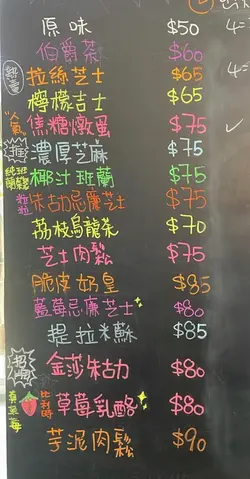 4=
原味 $50
伯爵茶 $60
熱賣 拉絲芝士 $65
4=
檸檬吉士 $65
人氣 焦糖燉蛋 $75
濃厚芝麻 $75
純班蘭 椰汁班蘭 $75
粒粒 朱古力忌廉芝士 $75
荔枝烏龍茶 $70
芝士肉鬆 $75
脆皮奶皇 $85
藍莓忌廉芝士 $80
提拉米蘇 $85
金莎朱古力 $80
比利時 草莓乳酪 $80
芋泥肉鬆 $90